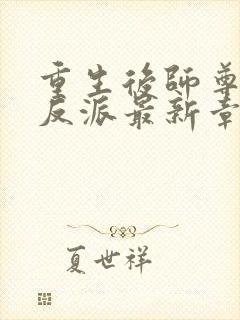 重生後師尊
反派最新章
夏世祥